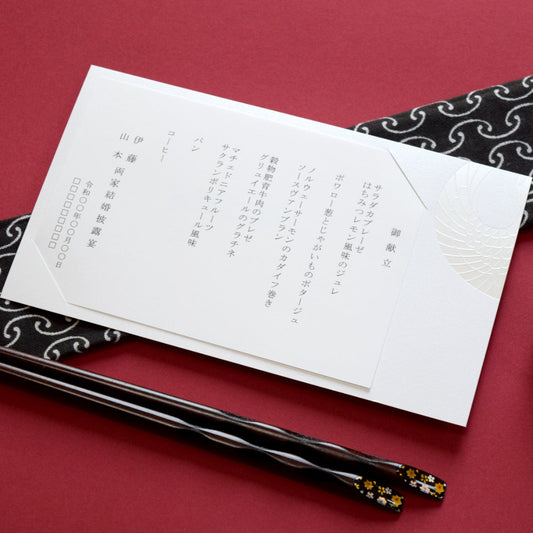 御献立
サラダカプレーゼ
はちみつレモン風味のジュレ
ポワロー葱とじゃがいものポタージュ
ノルウェーサーモンのカダイフ巻き
ソースヴァンブラン
穀物肥育牛肉のブレゼ
グリュイエールのグラチネ
マチェドニアフルーツ
サクランボリキュール風味
パン
コーヒー
伊藤
山本両家結婚披露宴
令和〇〇年〇〇月〇〇日
□□□□□□□